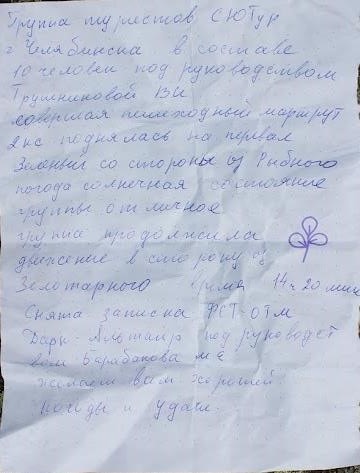 Группа туристов СЮТур
г Челябинска в составе
10 человек под руководством
Трушниковой ВИ
совершая пешеходный маршрут
2 кс поднялась на перевал
Зеленый со стороны оз Рыбного
погода солнечная состояние
группы отличное
группа продолжила
движение в сторону оз
Золотарного время 14ч 20 мин
Снята записка ФСТ-ОТМ
Дарк-Альтаир под руководст
вом Барабанова МЕ
желаем вам хорошей
погоды и удачи.